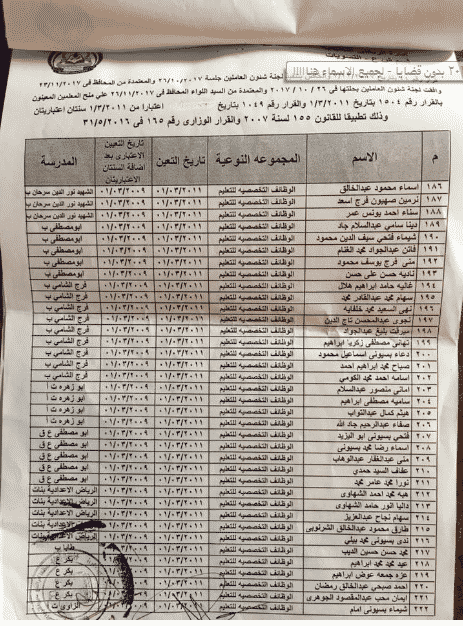 ٢٠ بدون قضايا - لجميع الاسماء هنا !!!
لجنة شئون العاملين جلسة ٢٦/١٠/٢٠١٧ والمعتمدة من المحافظ فى ٢٣/١١/٢٠١٧
وافقت لجنة شئون العاملين بجلستها فى ٢٦ / ١٠ / ٢٠١٧ والمعتمدة من السيد اللواء المحافظ فى ٢٦/١١/٢٠١٧ على منح المعلمين المعينون
بالقرار رقم ١٥٠٤ بتاريخ ١/٣/٢٠١١ والقرار رقم ١٠٤٩ بتاريخ اعتبارا من ١/٣/٢٠١١ سنتان اعتباريتان
وذلك تطبيقا للقانون ١٥٥ لسنة ٢٠٠٧ والقرار الوزارى رقم ١٦٥ فى ٣١/٥/٢٠١٦
م الاسم المجموعه النوعية تاريخ التعين تاريخ التعيين الاعتبارى بعد اضافة السنتان الاعتباريتان المدرسة
١٨٦ اسماء محمود عبدالخالق الوظائف التخصصيه للتعليم ٠١/٠٣/٢٠١١ ٠١/٠٣/٢٠٠٩ الشهيد نور الدين سرحان ب
١٨٧ نرمين صهيون فرج اسعد الوظائف التخصصيه للتعليم ٠١/٠٣/٢٠١١ ٠١/٠٣/٢٠٠٩ الشهيد نور الدين سرحان ب
١٨٨ سناء احمد يونس عمر الوظائف التخصصيه للتعليم ٠١/٠٣/٢٠١١ ٠١/٠٣/٢٠٠٩ الشهيد نور الدين سرحان ب
١٨٩ دينا سامى عبدالسلام جاد الوظائف التخصصيه للتعليم ٠١/٠٣/٢٠١١ ٠١/٠٣/٢٠٠٩ ابومصطفى ب
١٩٠ شيماء فتحى سيف الدين محمود الوظائف التخصصيه للتعليم ٠١/٠٣/٢٠١١ ٠١/٠٣/٢٠٠٩ ابومصطفى ب
١٩١ فاتن عبدالجواد محمد الغنام الوظائف التخصصيه للتعليم ٠١/٠٣/٢٠١١ ٠١/٠٣/٢٠٠٩ ابومصطفى ب
١٩٢ منى فرج يوسف محمود الوظائف التخصصيه للتعليم ٠١/٠٣/٢٠١١ ٠١/٠٣/٢٠٠٩ ابومصطفى ب
١٩٣ ناديه حسن على حسن الوظائف التخصصيه للتعليم ٠١/٠٣/٢٠١١ ٠١/٠٣/٢٠٠٩ ابومصطفى ب
١٩٤ غاليه حامد ابراهيم هلال الوظائف التخصصيه للتعليم ٠١/٠٣/٢٠١١ ٠١/٠٣/٢٠٠٩ فرج الشامى ب
١٩٥ سهام محمد عبدالقادر محمد الوظائف التخصصيه للتعليم ٠١/٠٣/٢٠١١ ٠١/٠٣/٢٠٠٩ فرج الشامى ب
١٩٦ نهى السعيد محمد الوظائف التخصصيه للتعليم ٠١/٠٣/٢٠١١ ٠١/٠٣/٢٠٠٩ فرج الشامى ب
١٩٧ نجوى عبدالمحسن تاج الدين الوظائف التخصصيه للتعليم ٠١/٠٣/٢٠١١ ٠١/٠٣/٢٠٠٩ فرج الشامى ب
١٩٨ ميرفت بليغ عبدالجواد الوظائف التخصصيه للتعليم ٠١/٠٣/٢٠١١ ٠١/٠٣/٢٠٠٩ فرج الشامى ب
١٩٩ تهانى مصطفى زكريا ابراهيم الوظائف التخصصيه للتعليم ٠١/٠٣/٢٠١١ ٠١/٠٣/٢٠٠٩ فرج الشامى ب
٢٠٠ دعاء بسيونى اسماعيل محمود الوظائف التخصصيه للتعليم ٠١/٠٣/٢٠١١ ٠١/٠٣/٢٠٠٩ فرج الشامى ب
٢٠١ صباح محمد ابراهيم احمد الوظائف التخصصيه للتعليم ٠١/٠٣/٢٠١١ ٠١/٠٣/٢٠٠٩ فرج الشامى ب
٢٠٢ اسامه احمد محمد الكومى الوظائف التخصصيه للتعليم ٠١/٠٣/٢٠١١ ٠١/٠٣/٢٠٠٩ فرج الشامى ب
٢٠٣ امانى منصور عبدالسلام الوظائف التخصصيه للتعليم ٠١/٠٣/٢٠١١ ٠١/٠٣/٢٠٠٩ ابو زهره ت أ
٢٠٤ ساميه مصطفى ابراهيم الوظائف التخصصيه للتعليم ٠١/٠٣/٢٠١١ ٠١/٠٣/٢٠٠٩ ابو زهره ت أ
٢٠٥ هيثم كمال عبدالتواب الوظائف التخصصيه للتعليم ٠١/٠٣/٢٠١١ ٠١/٠٣/٢٠٠٩ ابو زهره ت أ
٢٠٦ صفاء عبدالرحيم جاد الله الوظائف التخصصيه للتعليم ٠١/٠٣/٢٠١١ ٠١/٠٣/٢٠٠٩ ابو زهره ت أ
٢٠٧ فتحى بسيونى ابو اليزيد الوظائف التخصصيه للتعليم ٠١/٠٣/٢٠١١ ٠١/٠٣/٢٠٠٩ ابو مصطفى ع ق
٢٠٨ اسماء رضا محمد بسيونى الوظائف التخصصيه للتعليم ٠١/٠٣/٢٠١١ ٠١/٠٣/٢٠٠٩ ابو مصطفى ع ق
٢٠٩ منى عبدالغفار عبدالوهاب الوظائف التخصصيه للتعليم ٠١/٠٣/٢٠١١ ٠١/٠٣/٢٠٠٩ ابو مصطفى ع ق
٢١٠ عفاف السيد حمدى الوظائف التخصصيه للتعليم ٠١/٠٣/٢٠١١ ٠١/٠٣/٢٠٠٩ ابو مصطفى ع ق
٢١١ نورا محمد عامر محمد الوظائف التخصصيه للتعليم ٠١/٠٣/٢٠١١ ٠١/٠٣/٢٠٠٩ الرياض الاعدادية بنات
٢١٢ هبه محمد احمد الشهاوى الوظائف التخصصيه للتعليم ٠١/٠٣/٢٠١١ ٠١/٠٣/٢٠٠٩ الرياض الاعدادية بنات
٢١٣ داليا انور حامد الشهاوى الوظائف التخصصيه للتعليم ٠١/٠٣/٢٠١١ ٠١/٠٣/٢٠٠٩ الرياض الاعدادية بنات
٢١٤ سهام نجاح عبدالعزيز الوظائف التخصصيه للتعليم ٠١/٠٣/٢٠١١ ٠١/٠٣/٢٠٠٩ الرياض الاعدادية بنات
٢١٥ طارق محمود عبدالخالق الشرنوبى الوظائف التخصصيه للتعليم ٠١/٠٣/٢٠١١ ٢٠٠٩ الرياض الاعدادية بنات
٢١٦ ندى بسيونى محمد بيلى الوظائف التخصصيه للتعليم ٠١/٠٣/٢٠١١ ٢٠٠٩
٢١٧ محمد حسن حسين الديب الوظائف التخصصيه للتعليم ٠١/٠٣/٢٠١١ ٢٠٠٩
٢١٨ عبد محمد محمد ابراهيم الوظائف التخصصيه للتعليم ٠١/٠٣/٢٠١١ ٢٠٠٩
٢١٩ عزه جمعه عوض ابراهيم الوظائف التخصصيه للتعليم ٠١/٠٣/٢٠١١ ٢٠٠٩
٢٢٠ احمد صبحى عبدالخالق رمضان الوظائف التخصصيه للتعليم ٠١/٠٣/٢٠١١ ٢٠٠٩
٢٢١ ايمان محب عبدالمقصود الجوهرى الوظائف التخصصيه للتعليم ٠١/٠٣/٢٠١١ ٢٠٠٩
٢٢٢ شيماء بسيونى امام الوظائف التخصصيه للتعليم ٠١/٠٣/٢٠١١ ٢٠٠٩